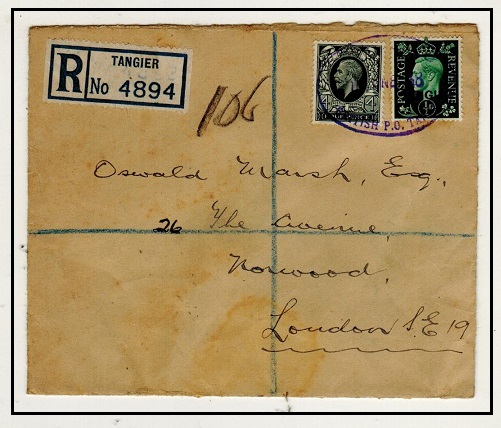 TANGIER
R No 4894
106
POSTAGE REVENUE
½D
BRITISH P.O. TA
Oswald Marsh, Esq.,
26 The Avenue,
Norwood,
London S.E 19